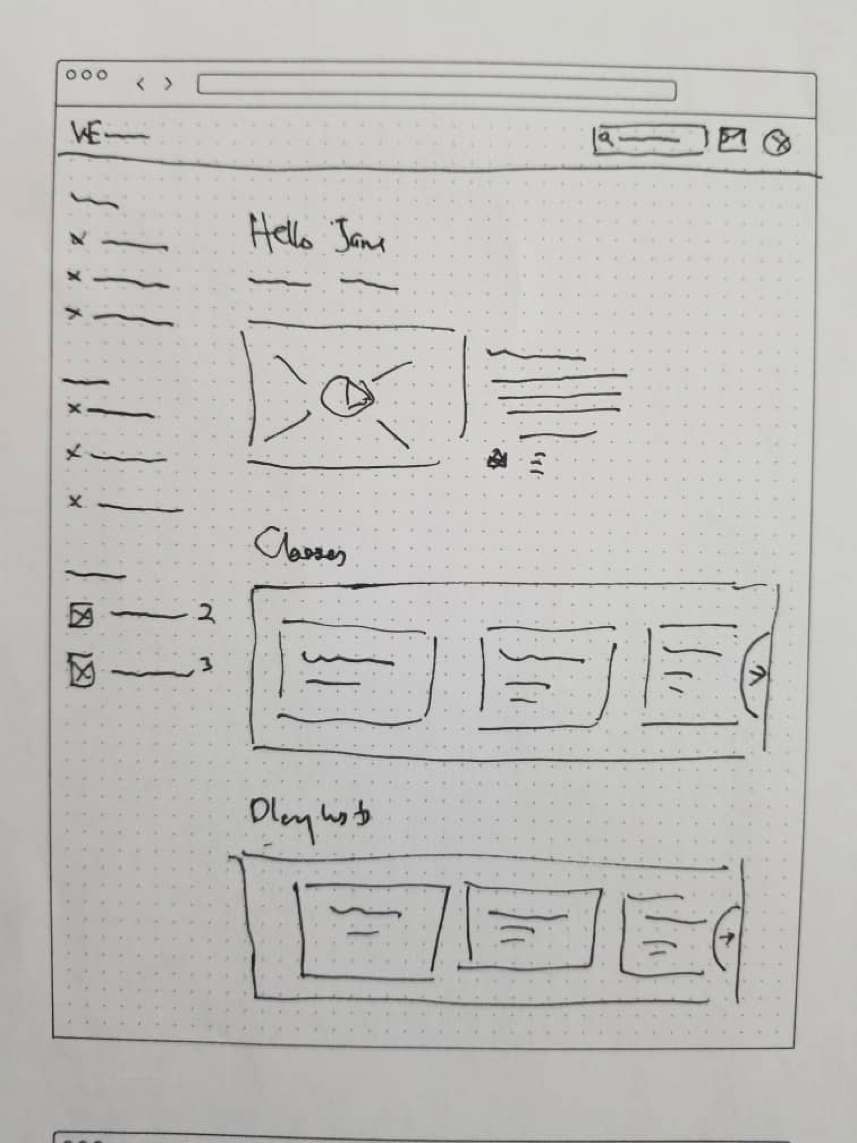 VE
Hello Jane
2
3
Classes
Playlists